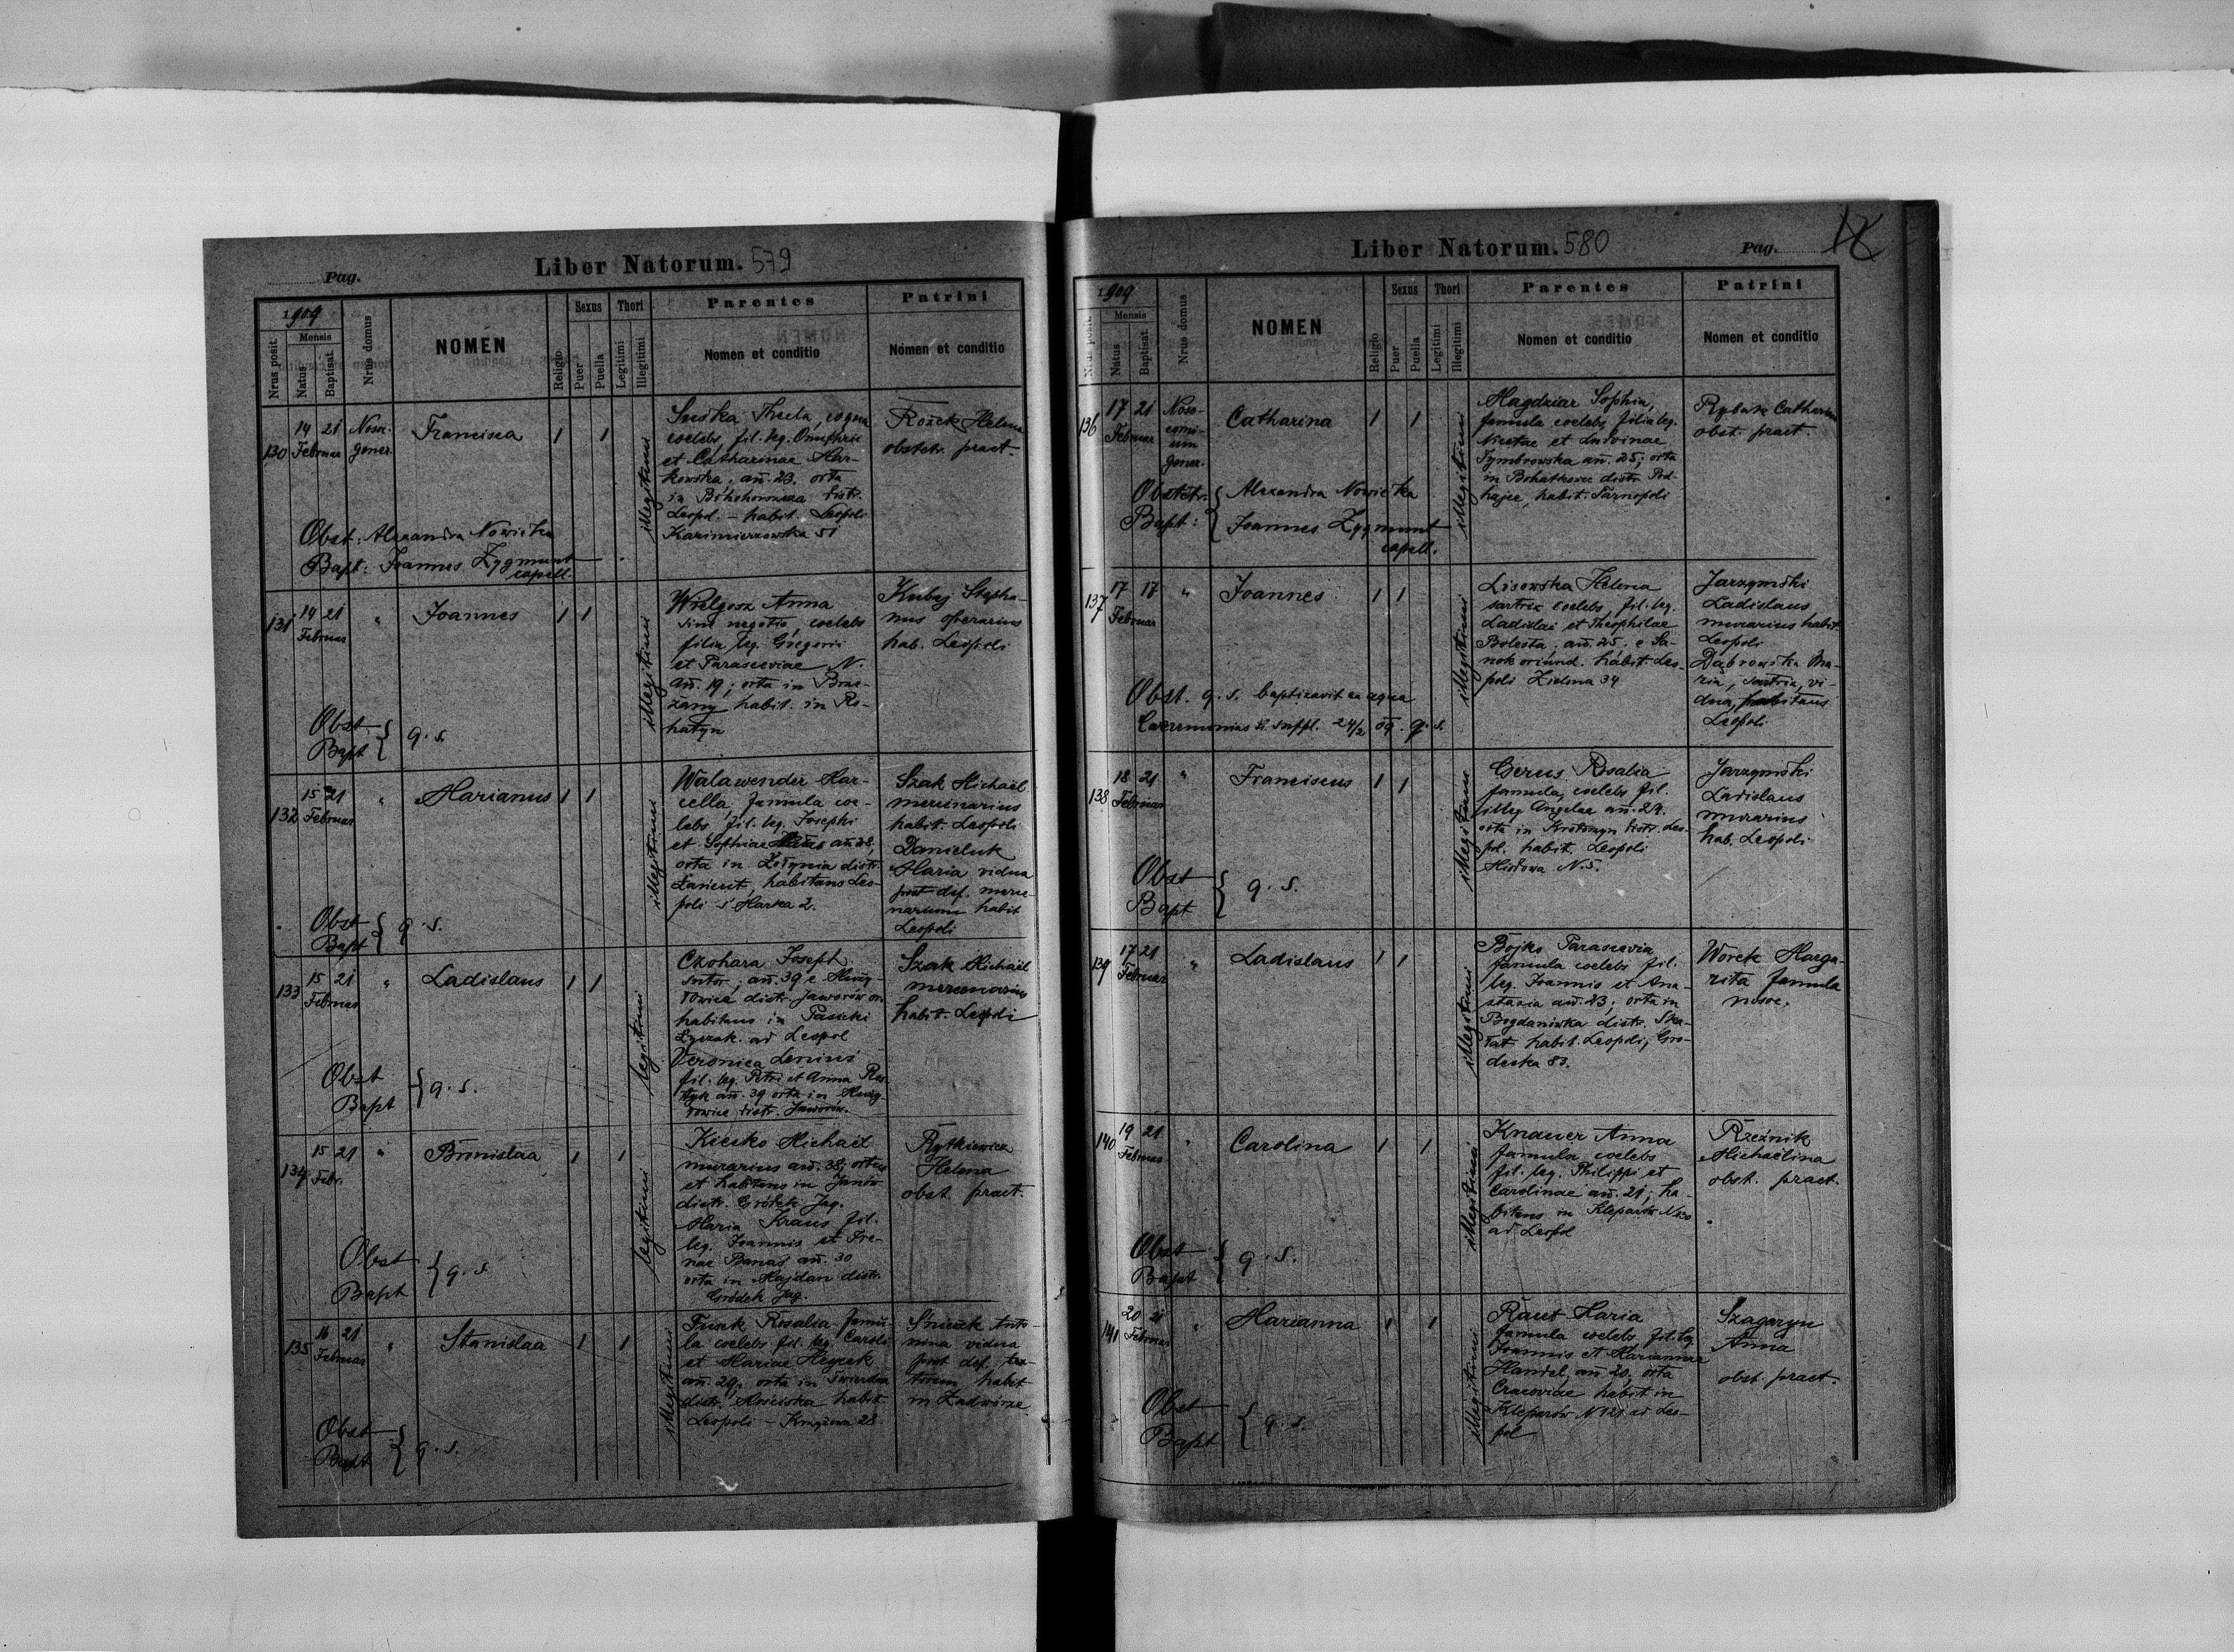 Pag.
Liber Natorum. 579
1909
Nrus posit.
Mensis
Natus
Baptisat.
Nrus domus
NOMEN
Religio
Sexus
Puer
Puella
Thori
Legitimi
Illegitimi
Parentes
Nomen et conditio
Patrini
Nomen et conditio
130
14 21
Februar
Noso-
gener.
Francisca
1 1
illegitimi
Suska Thecla, coqua
coelebs, fil. leg. Onuphrii
et Catharinae Mar-
kowska, añ. 23. orta
in distr.
Leopol. – habit. Leopoli
Kazimierzowska 51
Rożek Helena
obstetr. pract.
Obst: Alexandra Nowicka
Bapt: Joannes Zygmunt
capell.
131
14 21
Februar
"
Joannes
1 1
illegitimi
Wielgosz Anna
sine negotio, coelebs
filia leg. Gregorii
et Parasceviae N.
añ. 19; orta in Brze-
żany habit. in Ro-
hatyn
Kubaj Stepha-
nus operarius
hab. Leopoli
Obst
Bapt { q. s.
132
15 21
Februar
"
Marianus
1 1
illegitimi
Walawender Mar-
cella, famula coe-
lebs, fil. leg. Josephi
et Sophiae añ 28,
orta in Żołynia distr.
Łańcut, habitans Leo-
poli Ś Marka 2.
Szak Michaël
mercenarius
habit. Leopoli
Danieluk
Maria vidua
post def. merce-
narium habit
Leopoli
Obst
Bapt { q. s.
133
15 21
Februar
"
Ladislaus
1 1
legitimi
Czohara Joseph
sutor, añ. 39 e
distr Jaworów or.
habitans in Pasieki
Łyczak. ad Leopol
Veronica
fil. leg. Petri et Anna
añ. 39 orta in
distr. Jaworów.
Szak Michaël
mercenarius
habit. Leopoli
Obst
Bapt { q. s.
134
15 21
Febr.
"
Bronislaa
1 1
legitimi
Kiczko Michaël
murarius añ. 38; ortus
et habitans in Janów
distr. Gródek Jag.
Maria Kraus fil.
leg. Joannis et Ire-
nae Banaś añ. 30
orta in Majdan distr.
Gródek Jag.
Rytkiewicz
Helena
obst. pract.
Obst
Bapt { q. s.
135
16 21
Februar
"
Stanislaa
1 1
illegitimi
Fusek Rosalia famu-
la coelebs fil. leg. Caroli
et Mariae
añ. 29, orta in Twierdza
distr. Mościska habit.
Leopoli – 28.
Anto-
nina vidua
post def.
habit
in Zadwórze
Obst
Bapt { q. s.
Liber Natorum. 580
Pag.
1909
Nrus posit.
Mensis
Natus
Baptisat.
Nrus domus
NOMEN
Religio
Sexus
Puer
Puella
Thori
Legitimi
Illegitimi
Parentes
Nomen et conditio
Patrini
Nomen et conditio
136
17 21
Februar
Noso-
comi-
um
gener.
Catharina
1 1
illegitimi
Magdziar Sophia,
famula coelebs, filia leg.
Nicetae et Ludvinae
Dymbrowska añ. 25; orta
in Bohatkowce distr. Pod-
hajce, habit. Tarnopoli
Rybak Catharina
obst. pract.
Obstetr. { Alexandra Nowicka
Bapt: Joannes Zygmunt
capell.
137
17 17
Februar
"
Joannes
1 1
illegitimi
Lisowska Helena
sartrix coelebs, fil. leg.
Ladislai et Theophilae
Bolesta, añ. 25. e Sa-
nok oriund. habit. Leo-
poli Zielona 34
Jarzymski
Ladislaus
murarius habit.
Leopoli
Dąbrowska Ma-
ria, sartrix, vi-
dua, habitans
Leopoli
Obst. q. s. baptizavit ex aqua
Caeremonias suppl. 24/2 09. q. s.
138
18 21
Februar
"
Franciscus
1 1
illegitimi
Gerus Rosalia
famula, coelebs fil.
illeg Angelae añ. 24.
orta in Krotoszyn distr. Leo-
pol. habit. Leopoli
N. 5.
Jarzymski
Ladislaus
murarius
hab. Leopoli
Obst
Bapt { q. s.
139
17 21
Februar
"
Ladislaus
1 1
illegitimi
Bojko Parascevia
famula coelebs fil.
leg. Joannis et Ana-
stasia añ. 23; orta in
Bogdanówka distr. Ska-
łat habit. Leopoli, Gro-
decka 83.
Worek Marga-
rita famula
nosoc.
140
19 21
Februar
"
Carolina
1 1
illegitimi
Knauer Anna
famula coelebs
fil. leg. Philippi et
Carolinae añ. 21; ha-
bitans in Kleparów
ad Leopol
Rzeźnik
Michaëlina
obst. pract.
Obst
Bapt { q. s.
141
20 21
Februar
"
Marianna
1 1
illegitimi
Raut Maria
famula coelebs fil. leg.
Joannis et Mariannae
Handel, añ 20, orta
Cracoviae habit in
Kleparów N 121 ad Leo-
pol
Szagaryn
Anna
obst. pract.
Obst
Bapt { q. s.